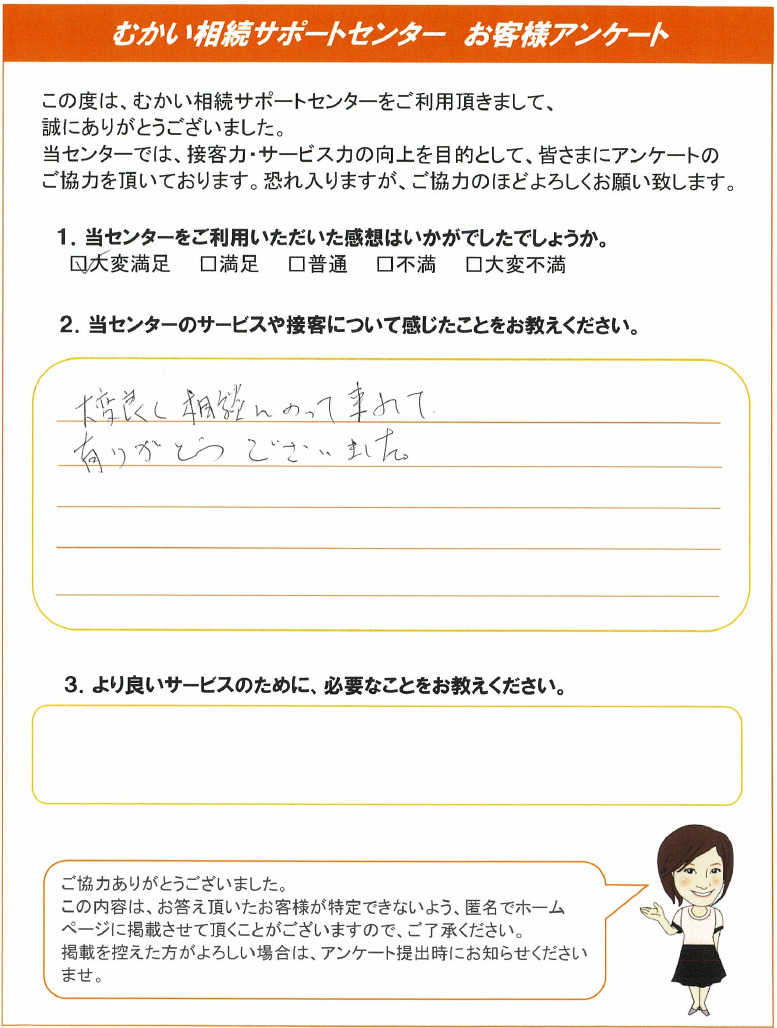 むかい相続サポートセンター　お客様アンケート
この度は、むかい相続サポートセンターをご利用頂きまして、
誠にありがとうございました。
当センターでは、接客力・サービス力の向上を目的として、皆さまにアンケートの
ご協力を頂いております。恐れ入りますが、ご協力のほどよろしくお願い致します。
１．当センターをご利用いただいた感想はいかがでしたでしょうか。
☑大変満足　□満足　□普通　□不満　□大変不満
２．当センターのサービスや接客について感じたことをお教えください。
大変良く相談にのって来れて
有りがとうございました。
３．より良いサービスのために、必要なことをお教えください。
ご協力ありがとうございました。
この内容は、お答え頂いたお客様が特定できないよう、匿名でホーム
ページに掲載させて頂くことがございますので、ご了承ください。
掲載を控えた方がよろしい場合は、アンケート提出時にお知らせください
ませ。